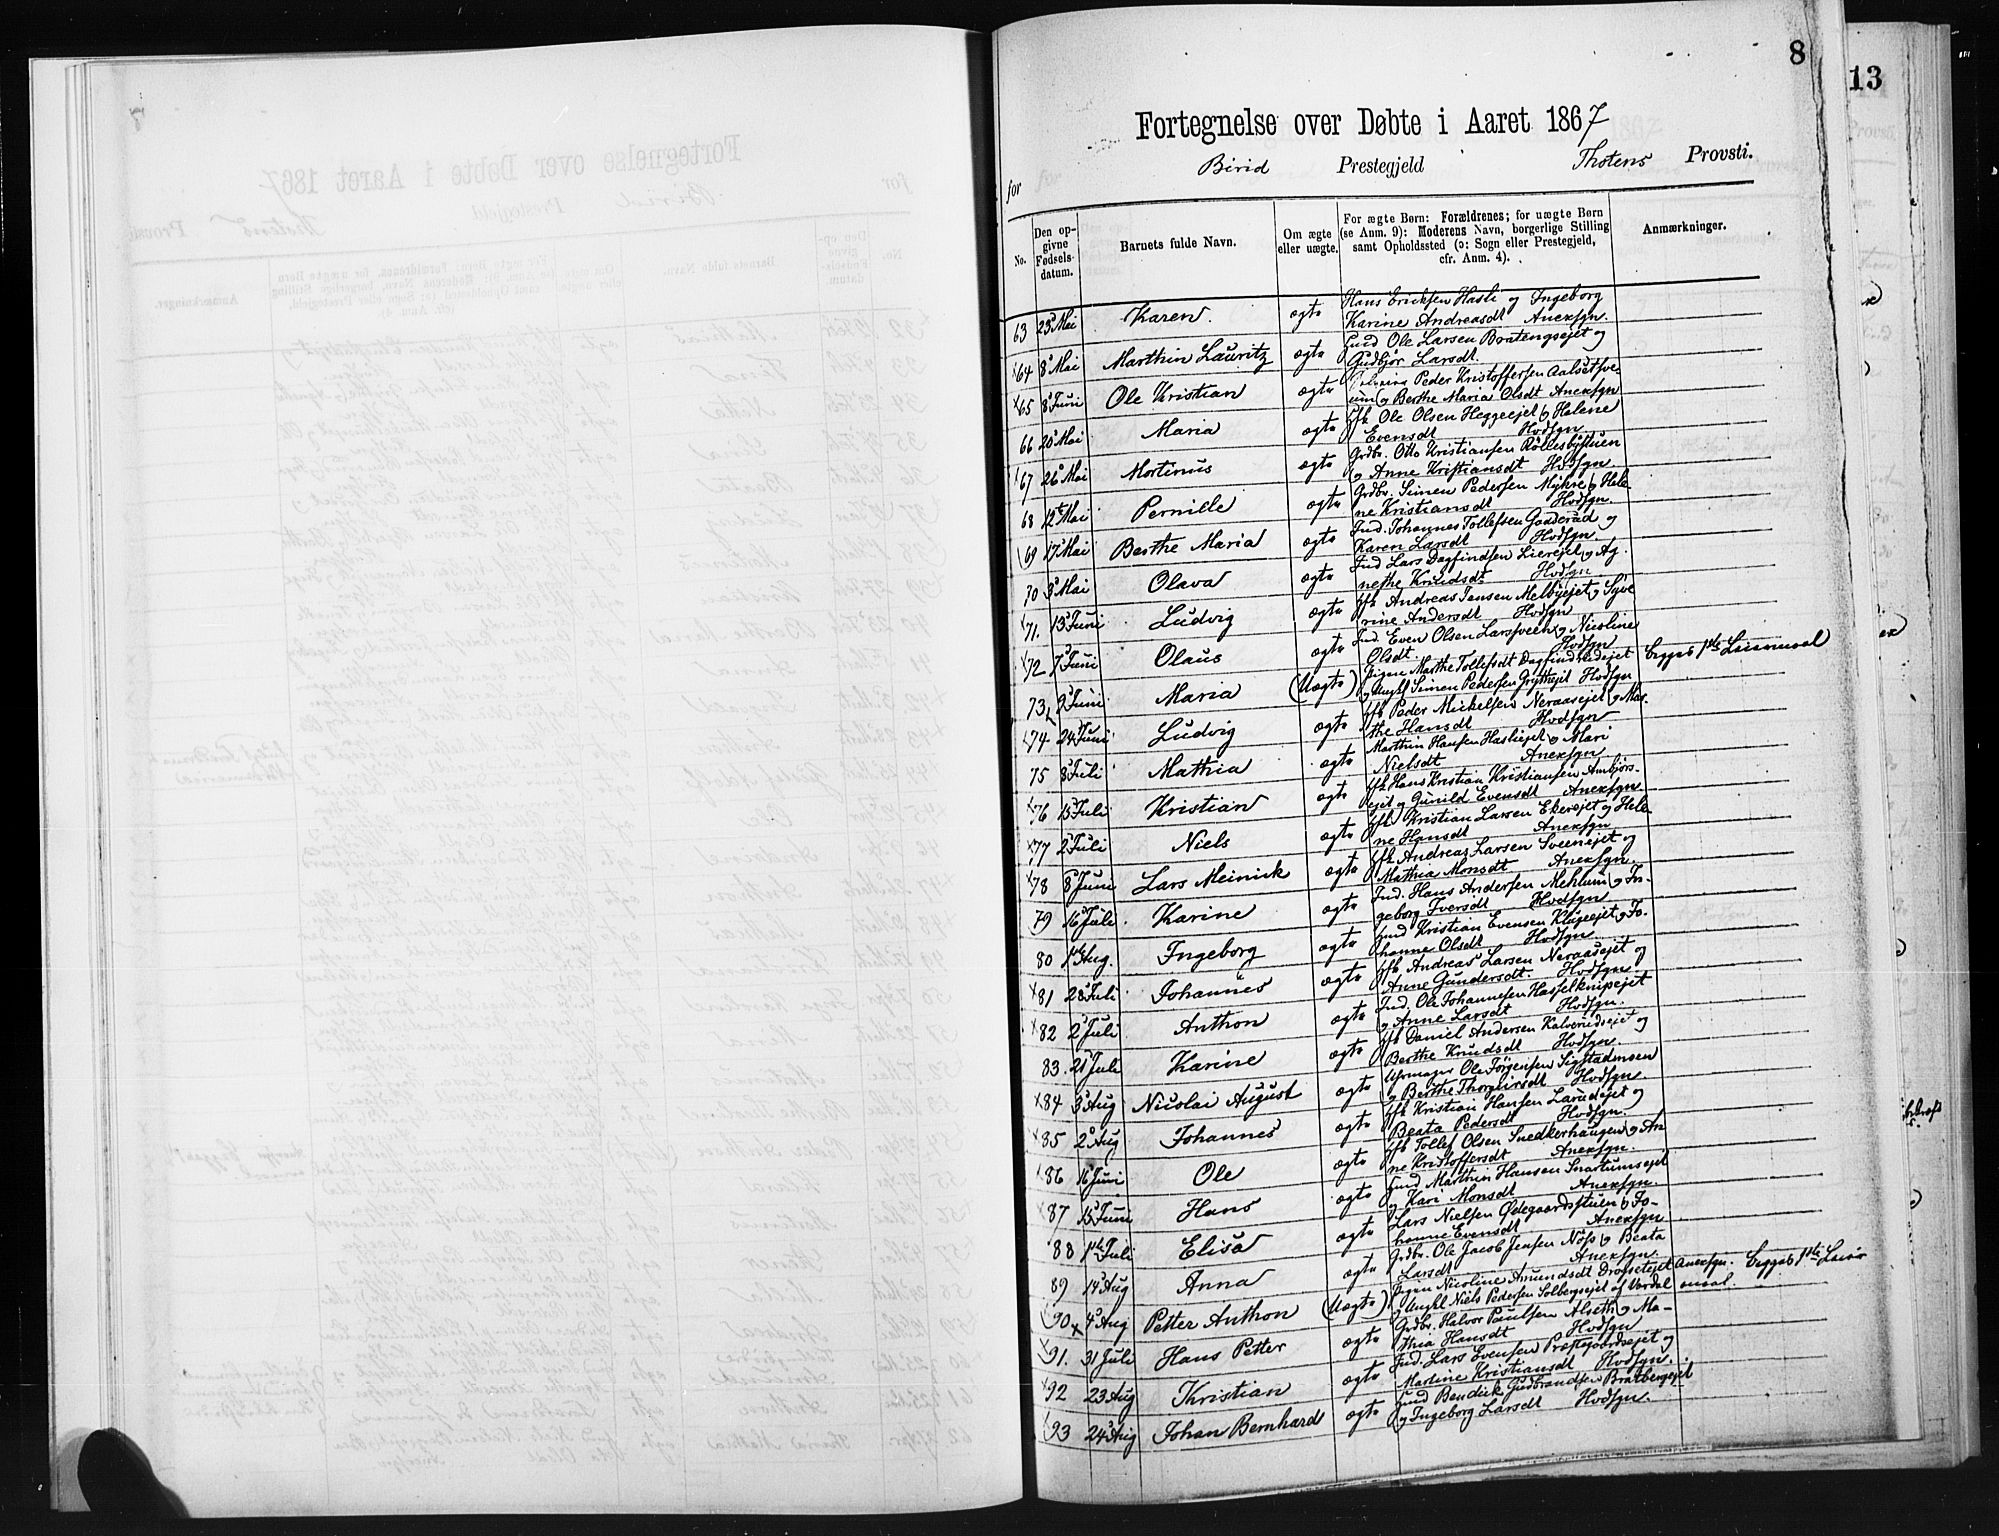 8
13
Fortegnelse over Døbte i Aaret 1867
for Birid Prestegjeld Thotens Provsti.
No. Den opgivne Fødselsdatum. Barnets fulde Navn. Om ægte eller uægte. For ægte Børn: Forældrenes; for uægte Børn (se Anm. 9): Moderens Navn, borgerlige Stilling samt Opholdssted (ɔ: Sogn eller Prestegjeld, cfr. Anm. 4). Anmærkninger.
63 23 Mai Karen ægte Hans Ericksen Hasli og Ingeborg
Karine Andreasdt Anexsgn
64 8 Mai Marthin Lauritz ægte Husmd Ole Larsen Bratengsejet og
Gudbjør Larsdt.
65 8 Juni Ole Kristian ægte Peder Kristoffersen Aalsetsve-
um og Berthe Maria Olsdt Anexsgn
66 20 Mai Maria ægte Hfk Ole Olsen Heggeejet og Helene
Evensdt Hvdsgn
67 26 Mai Mortinus ægte Grdbr. Otto Kristiansen Røllesbystuen
og Anne Kristiansdt Hvdsgn.
68 12te Mai Pernille ægte Grdbr. Simen Pedersen Mykre og Hele-
ne Kristiansdt Hvdsgn.
69 17 Mai Berthe Maria ægte Ind. Johannes Tollefsen Gaaderud og
Karen Larsdt Hvdsgn.
70 3 Mai Olava ægte Ind Lars Dagfindsen Lierejet og Ag-
nethe Knudsdt Hvdsgn
71. 13 Juni Ludvig ægte Hfk Andreas Jensen Melbyejet og Syve
rine Andersdt Hvdsgn
72 7 Juni Olaus ægte Ind. Even Olsen Larsveen og Nicoline
Olsdt. Hvdsgn
73 2 Juni Maria (Uægte) Pigen Marthe Tollefsdt Dagfindsrudejet Begges 1ste Leiermaal
og Ungkl Simen Pedersen Grytteejet Hvdsgn
74 24 Juni Ludvig ægte Hfk Peder Mickelsen Neraasejet og Mar-
the Hansdt Hvdsgn
75 8 Juli Mathia ægte Marthin Hansen Hasliejet og Mari
Nielsdt Anexsgn
76 15 Juli Kristian ægte Hfk Hans Kristian Kristiansen Ambjørs-
ejet og Gunild Evensdt Anexsgn
77 2 Juli Niels ægte Hfk Kristian Larsen Ekerejet og Hele-
ne Hansdt Anexsgn
78 8 Juni Lars Meinick ægte Hfk Andreas Larsen Sveenejet og
Mathia Monsdt Anexsgn.
79 16 Juli Karine ægte Ind. Hans Andersen Mehlum og In-
geborg Iversdt Hvdsgn
80 1ste Aug. Ingeborg ægte Husmd Kristian Evensen Klugeejet og Jo-
hanne Olsdt Hvdsgn
81 28 Juli Johannes ægte Hfk Andreas Larsen Neraasejet og
Anne Gundersdt. Hvdsgn.
82 2 Juli Anthon ægte Ind. Ole Johannesen Hasselknipejet
og Anne Larsdt Hvdsgn.
83. 21 Juli Karine ægte Hfk Daniel Andersen Kalverudsejet og
Berthe Knudsdt Hvdsgn
84 3 Aug Nicolai August ægte Uhrmager Ole Jørgensen Sigstadmoen
og Berthe Thorgeirsdt Hvdsgn
85 2 Aug Johannes ægte Hfk Kristian Hansen Larudejet og
Beata Pedersdt Hvdsgn.
86 16 Juni Ole ægte Hfk Tollef Olsen Snedkerhaugen og An
ne Kristoffersdt Anexsgn.
87 15 Juni Hans ægte Husmd Marthin Hansen Snartumsejet
og Kari Monsdt Anexsgn.
88 1ste Juli Elise ægte Lars Nielsen Ødegaardsstuen og Jo-
hanne Evensdt Anexsgn
89 14 Aug Anna ægte Grdbr. Ole Jacob Jensen Nøss og Beata
Larsdt Anexsgn.
90 4 Aug Petter Anthon (Uægte) Pigen Nicoline Amundsdt Drofsetejet Anexsgn. Begges 1ste Leier
og Ungkl Niels Pedersen Solbergsejet af Vardal maal.
91. 31 Juli Hans Petter ægte Grdbr. Halvor Paulsen Alseth og Ma-
thia Hansdt Hvdsgn
92 23 Aug Kristian ægte Ind. Lars Evensen Præstegaardsejet og
Martine Kristiansdt Hvdsgn.
93 24 Aug Johan Bernhard ægte Husmd Bendick Gudbrandsen Bratbergejet
og Ingeborg Larsdt Hvdsgn.